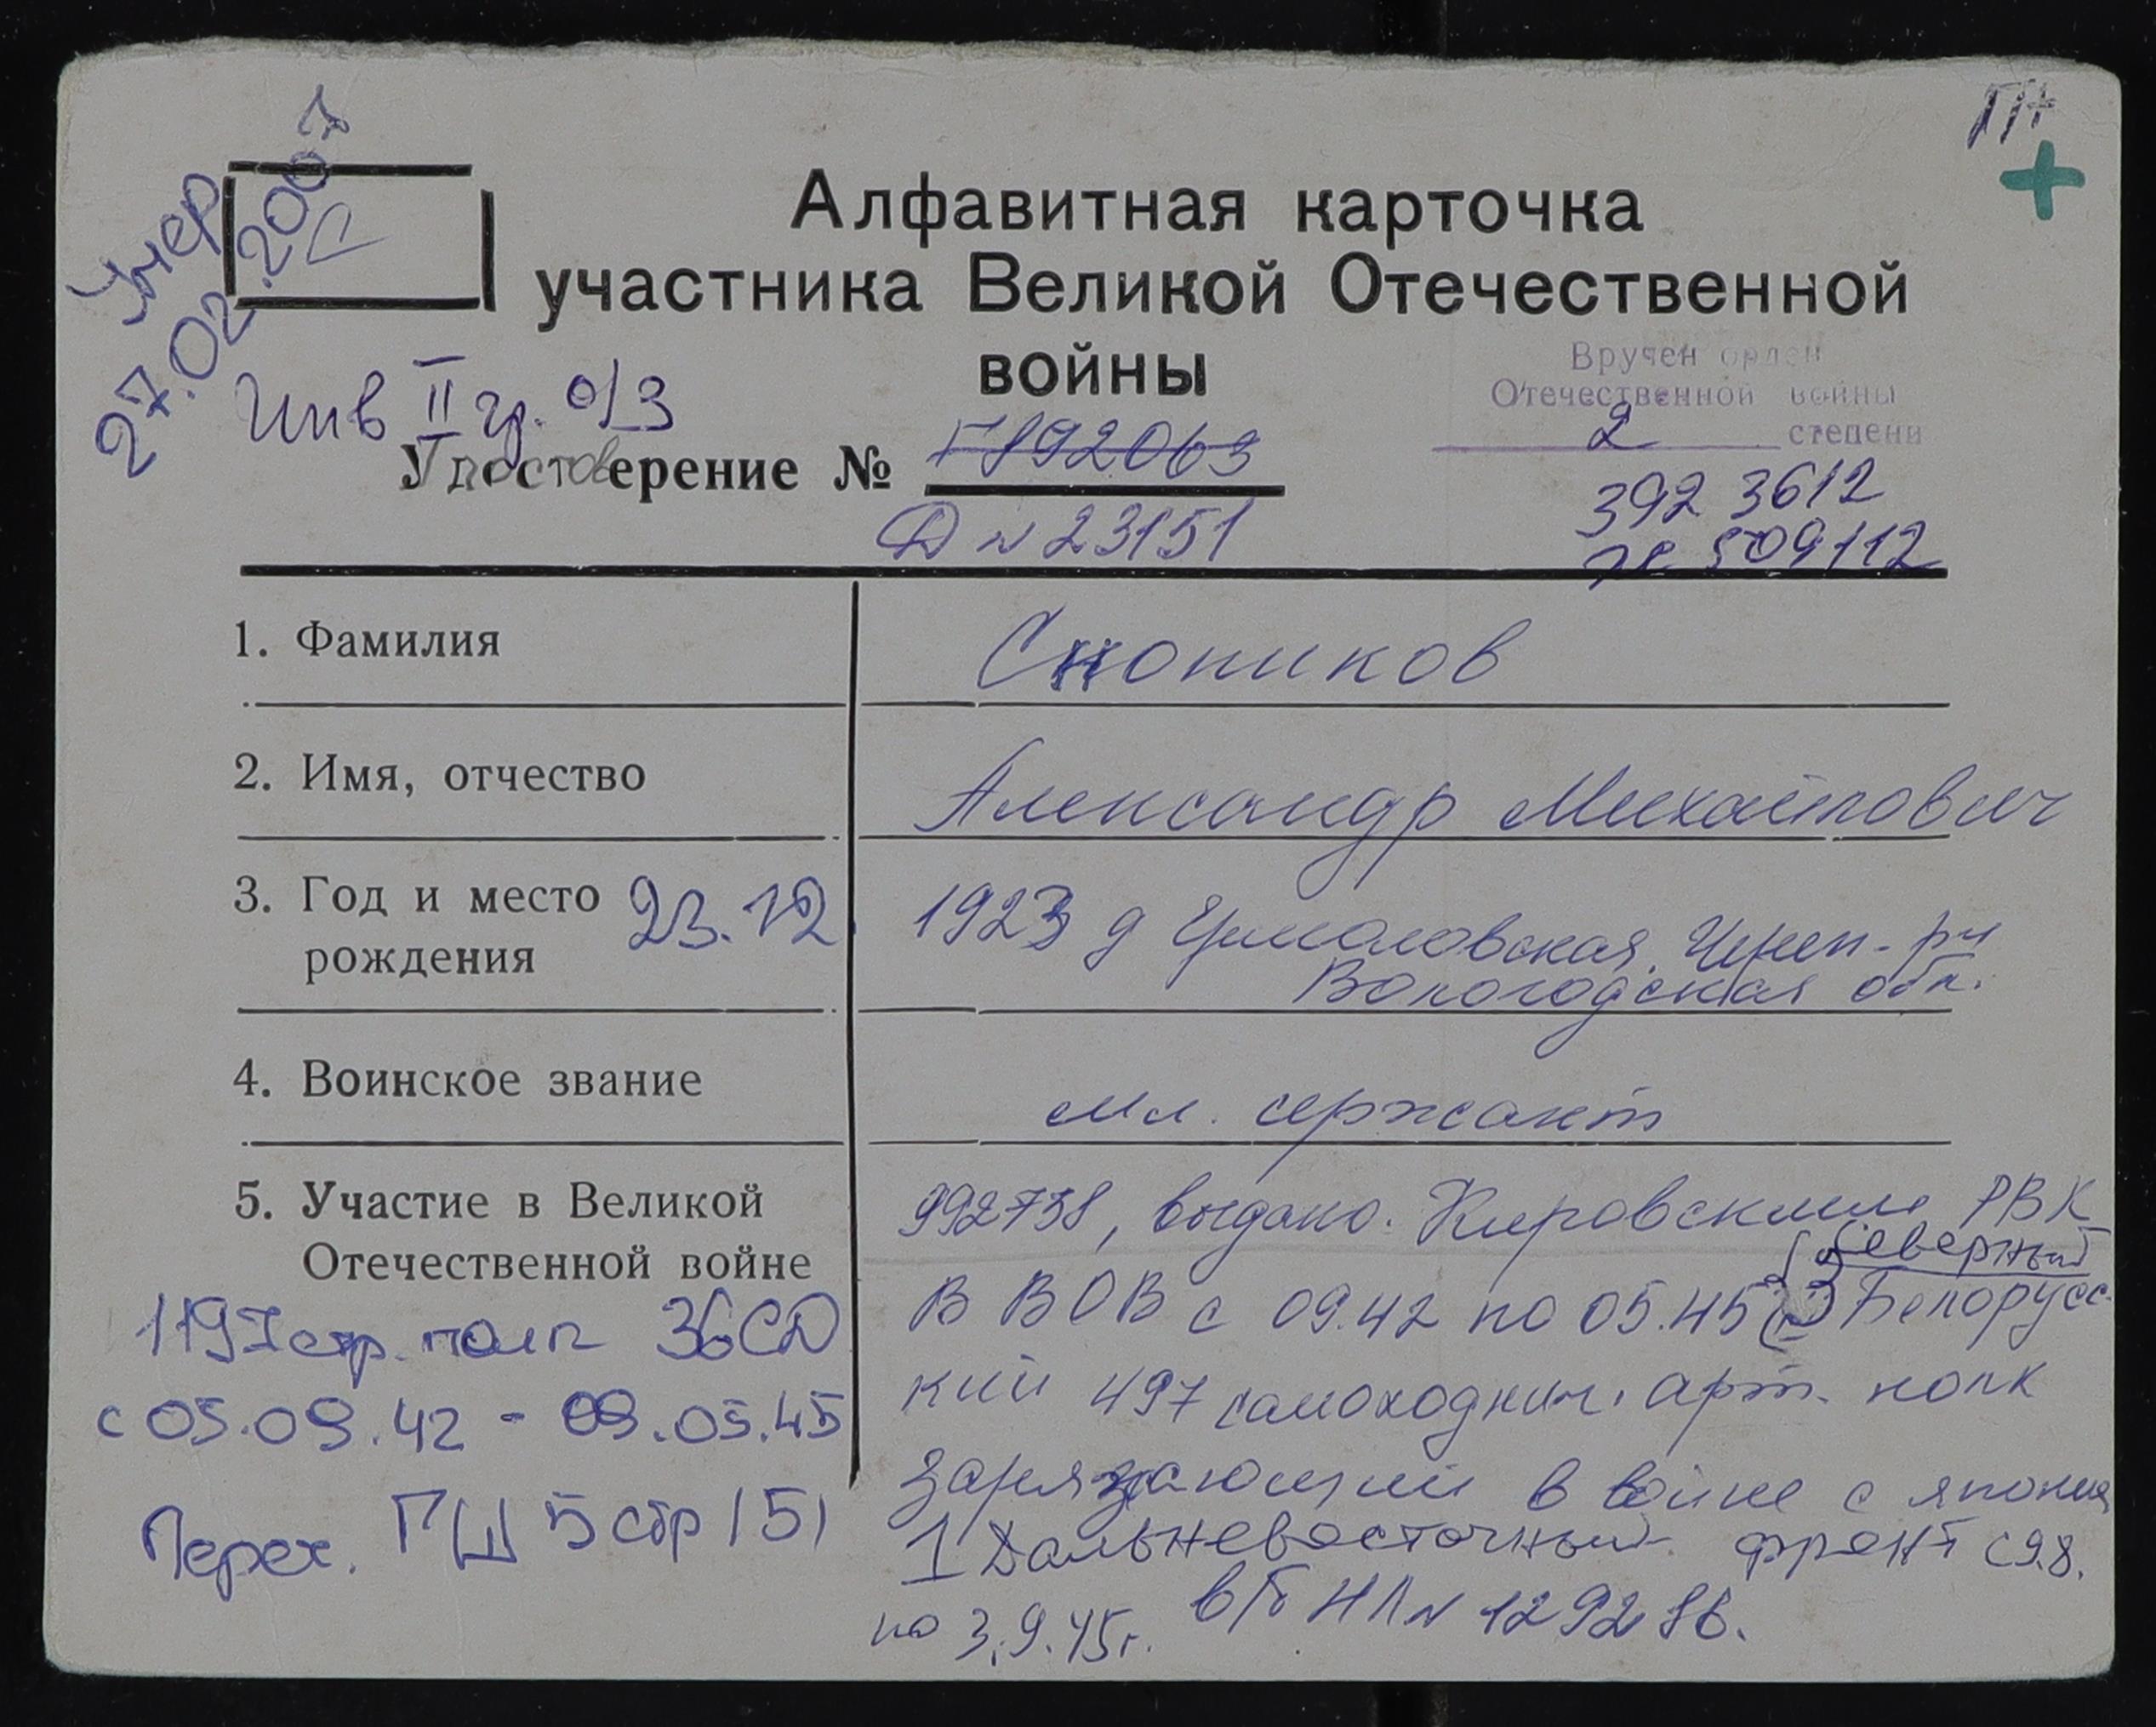 Умер
27.02.2007
ГН
+
Алфавитная карточка
участника Великой Отечественной
войны
Инв II гр. о/з
Вручен орден
Отечественной войны
2 степени
Удостоверение № Г 892063
392 3612
Д № 23151
509112
1. Фамилия Снопиков
2. Имя, отчество Александр Михайлович
3. Год и место 23.12. 1923 д Ермоловская, Череп- рн
рождения Вологодская обл.
4. Воинское звание мл. сержант
5. Участие в Великой 992738, выдано. Кировским РВК
Отечественной войне
Северный
В ВОВ с 09.42 по 05.45 3 Белорусс-
кий 497 самоходный. арт. полк
заряжающий в войне с японией
1 Дальневосточный фронт с 9.8.
по 3.9.45г. в/б НЛ № 129286.
1197 стр. полк 36СД
с 05.09.42 - 09.05.45
Переч. ГШ 5 стр 151